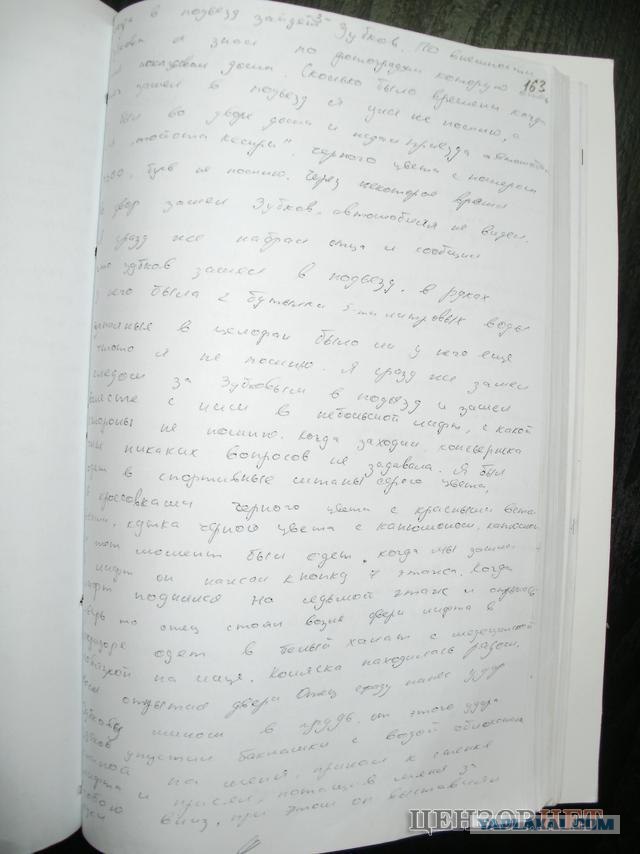 в подъезд зайдет Зубков. По внешности
я знал по фотографии которую
показывал дома. Сколько было времени когда
163
зашел в подъезд я уже не помню, я
был во дворе дома и ждал приезда автомобиля
"тойота кемри" черного цвета с номером
букв не помню. Через некоторое время
двор зашел Зубков, автомобиля не видел.
сразу же набрал отца и сообщил
что Зубков зашел в подъезд. В руках
него была 2 бутылки 5-ти литровых воды
в целофан было ли у него еще
что-то я не помню. Я сразу же зашел
следом за Зубковым в подъезд и зашел
вместе с ним в небольшой лифт, с какой
стороны не помню. Когда заходил консьержка
никаких вопросов не задавала. Я был
одет в спортивные штаны серого цвета,
кроссовками черного цвета с красными
куртка черного цвета с капюшоном, капюшон
тот момент был одет. Когда мы зашли
лифт он нажал кнопку 7 этажа. Когда
лифт поднялся на седьмой этаж и
дверь то отец стоял возле двери лифта в
коридоре одет в белый халат с медецинской
повязкой на лице. Коляска находилась рядом.
открытия двери Отец сразу нанес удар
Зубкову в грудь, от этого удара
Зубков упустил баклашки с водой
на меня, прижал к стенке
лифта и присел,
вниз, при этом он выставлял
ЦЕНЗОР.НЕТ
YAPLAKAL.COM